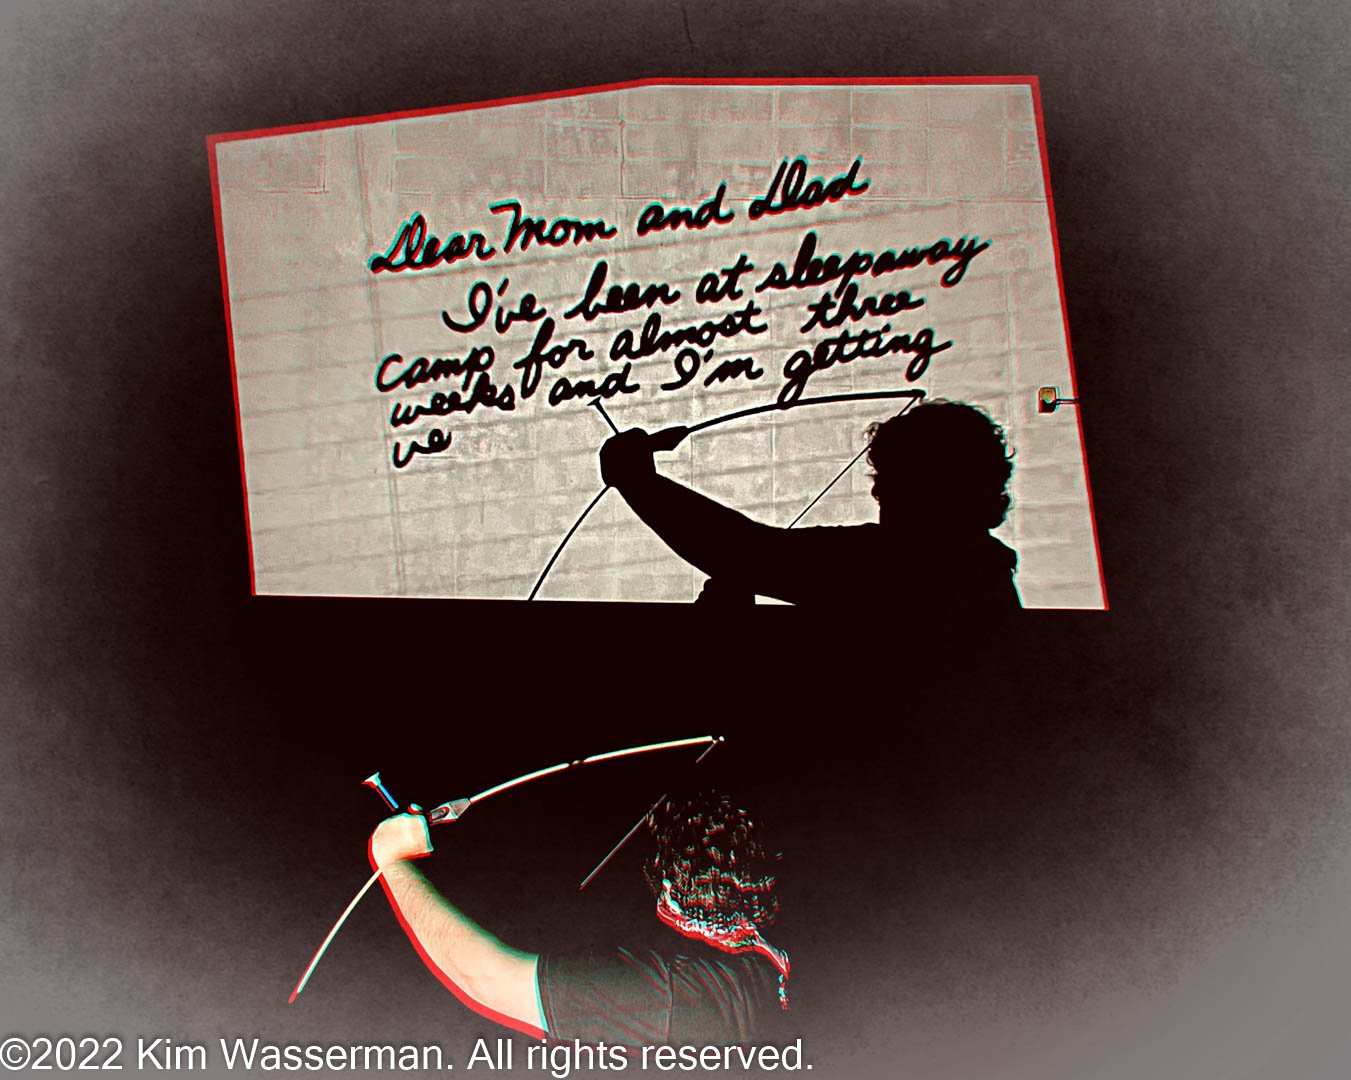 Dear Mom and Dad
I've been at sleepaway
camp for almost three
weeks and I'm getting
ve
©2022 Kim Wasserman. All rights reserved.